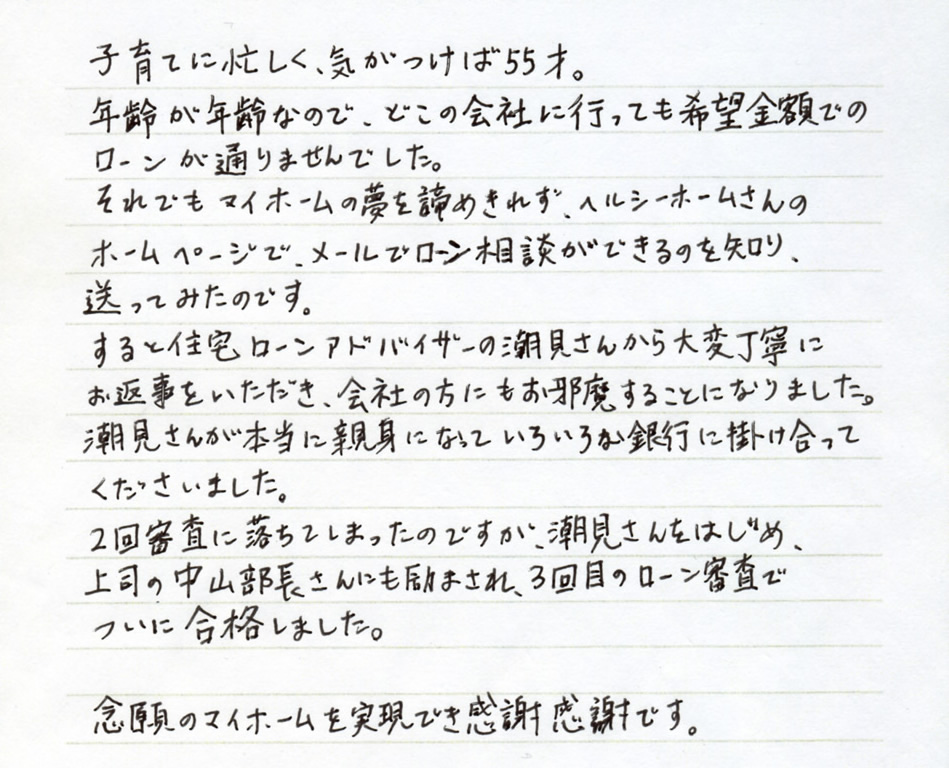 子育てに忙しく、気がつけば55才。
年齢が年齢なので、どこの会社に行っても希望金額での
ローンが通りませんでした。
それでもマイホームの夢を諦めきれず、ヘルシーホームさんの
ホームページで、メールでローン相談ができるのを知り、
送ってみたのです。
すると住宅ローンアドバイザーの潮見さんから大変丁寧に
お返事をいただき、会社の方にもお邪魔することになりました。
潮見さんが本当に親身になっていろいろな銀行に掛け合って
くださいました。
2回審査に落ちてしまったのですが、潮見さんをはじめ、
上司の中山部長さんにも励まされ、3回目のローン審査で
ついに合格しました。
念願のマイホームを実現でき感謝感謝です。